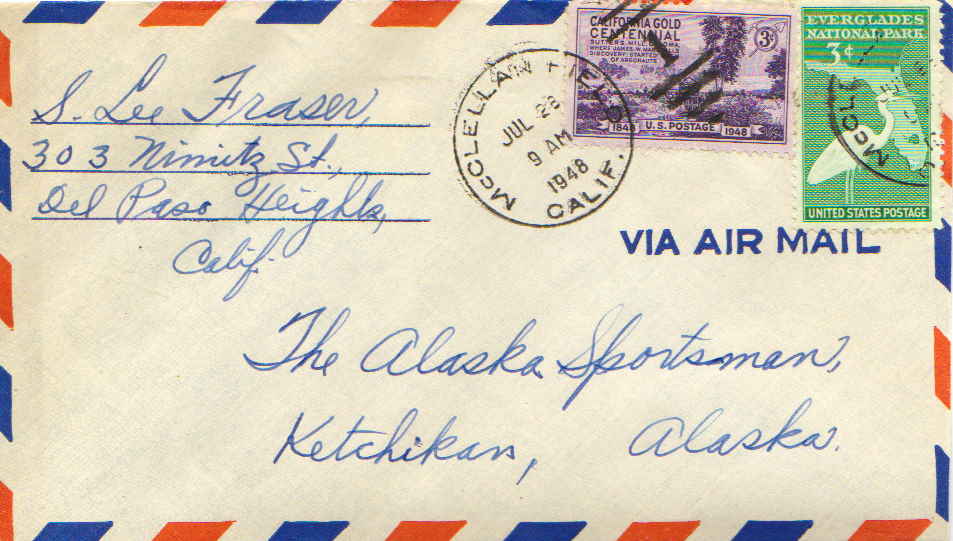 S. Lee Fraser,
303 Nimitz St.,
Del Paso Heights,
Calif.
McCLELLAN FIELD
JUL 28
9 AM
1948
CALIF.
CALIFORNIA GOLD
CENTENNIAL
SUTTER'S MILL,
WHERE JAMES W.
DISCOVERY STARTED
OF ARGONAUTS
3¢
1848 U.S. POSTAGE 1948
EVERGLADES
NATIONAL PARK
3¢
McCLE
UNITED STATES POSTAGE
VIA AIR MAIL
The Alaska Sportsman,
Ketchikan, Alaska.